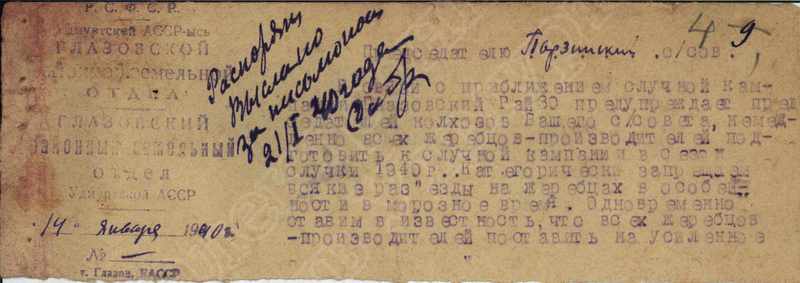 Р. С. Ф. С. Р.
Удмуртский АССР-ысь
ГЛАЗОВСКОЙ
ОТДЕЛ
ГЛАЗОВСКИЙ
Районный земельный
отдел
Удмуртской АССР
14 января 1940г.
№ —
т. Глазов, УАССР
Выслано
за письмоном
21/I 40 года
4 9
Председателю Парзинский с/сов.
В связи с приближением случной кам-
Глазовский РайЗО предупреждает пред
колхозов Вашего с/совета, немед-
ленно всех жеребцов-производителей под-
готовить к случной кампании в сезон
случки 1940г. Категорически запрещаем
всякие раз"езды на жеребцах в особен-
ности в морозное время. Одновременно
ставим в известность, что всех жеребцов
-производителей поставить на усиленное